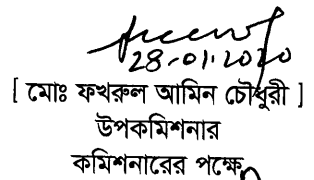 28-01-2020
[ মোঃ ফখরুল আমিন চৌধুরী ]
উপকমিশনার
কমিশনারের পক্ষে